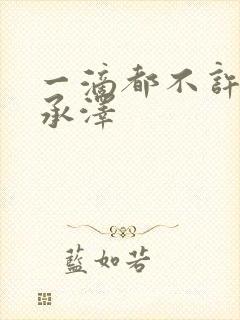 一滴都不許
承澤
藍如若